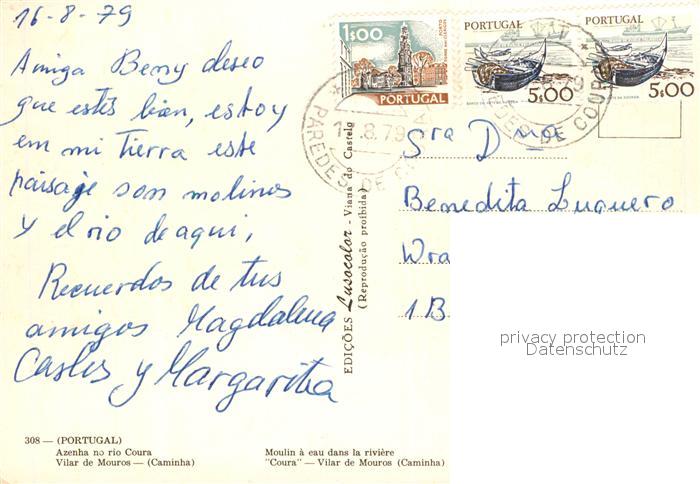 16-8-79
Amiga Beny deseo
que estés bien, estoy
en mi tierra este
paisaje son molinos
y el rio de aqui,
Recuerdos de tus
amigos Magdalena
Carlos y Margarita
308 — (PORTUGAL)
Azenha no rio Coura
Vilar de Mouros — (Caminha)
Moulin à eau dans la rivière
"Coura" — Vilar de Mouros (Caminha)
EDIÇÕES Lusocolor - Viana do Castelo
(Reprodução proibida)
1$00
PORTUGAL
PORTUGAL
5$00
PORTUGAL
5$00
PAREDES DE COURA
8.79
PAREDES DE COURA
79
Sra Dna
Benedita Luquero
1B
privacy protection
Datenschutz